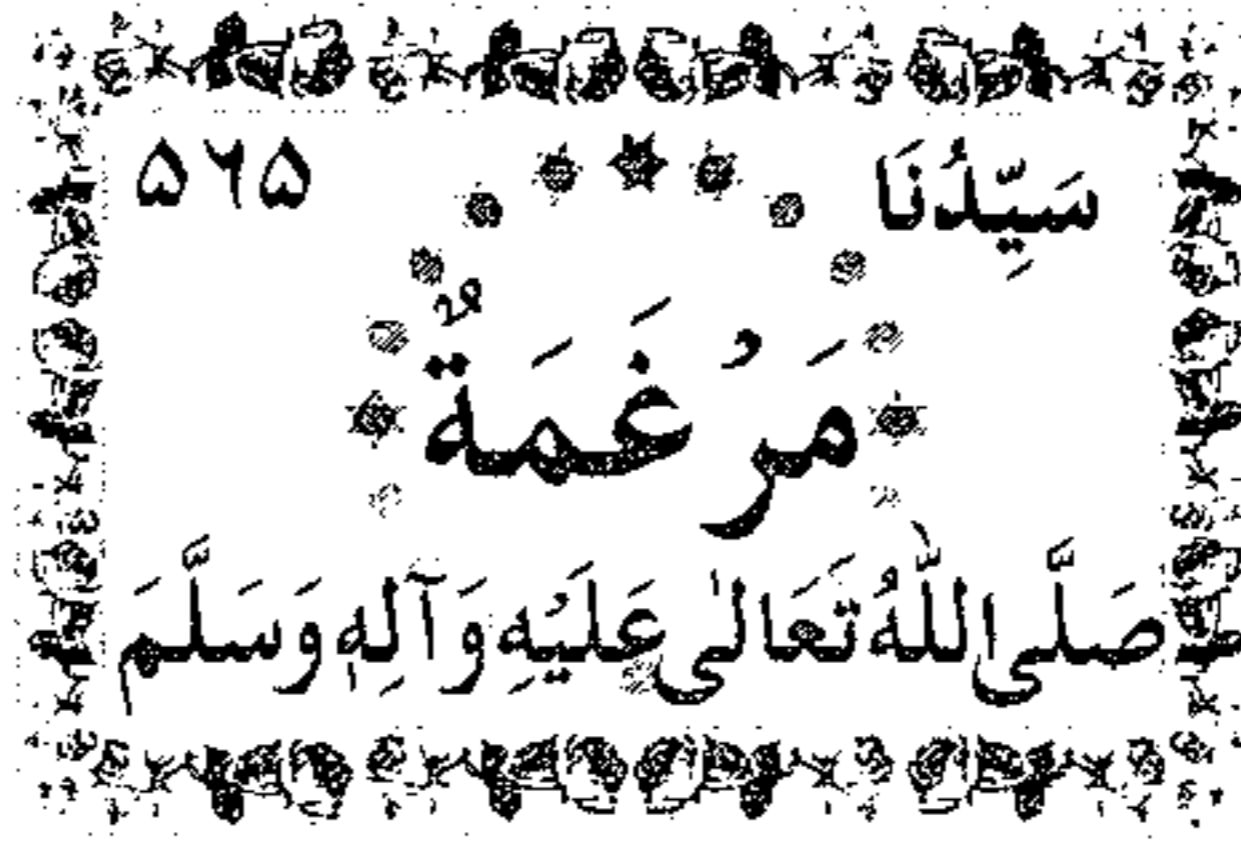 سَيِّدُنَا ۵۶۵
مَرْغَمَةٌ
صَلَّى اللّٰهُ تَعَالىٰ عَلَيْهِ وَآلِهٖ وَسَلَّمَ